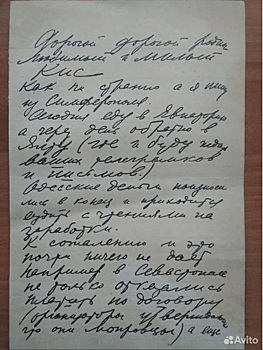 Дорогой дорогой родной
Любимый и Милый
Кис
Как ни странно а я пишу
из Симферополя.
Сегодня еду в Евпаторию
а через день обратно в
Ялту (где и буду ждать
ваших телеграмков
и письмов)
Одесские деньги
лись в конец и приходится
ездить с чтениями на
заработки.
К сожалению и это
почти ничего не дает
Например в Севастополе
не только отказались
платить по договору
(организаторы
что они Мопровцы) а еще
Avito